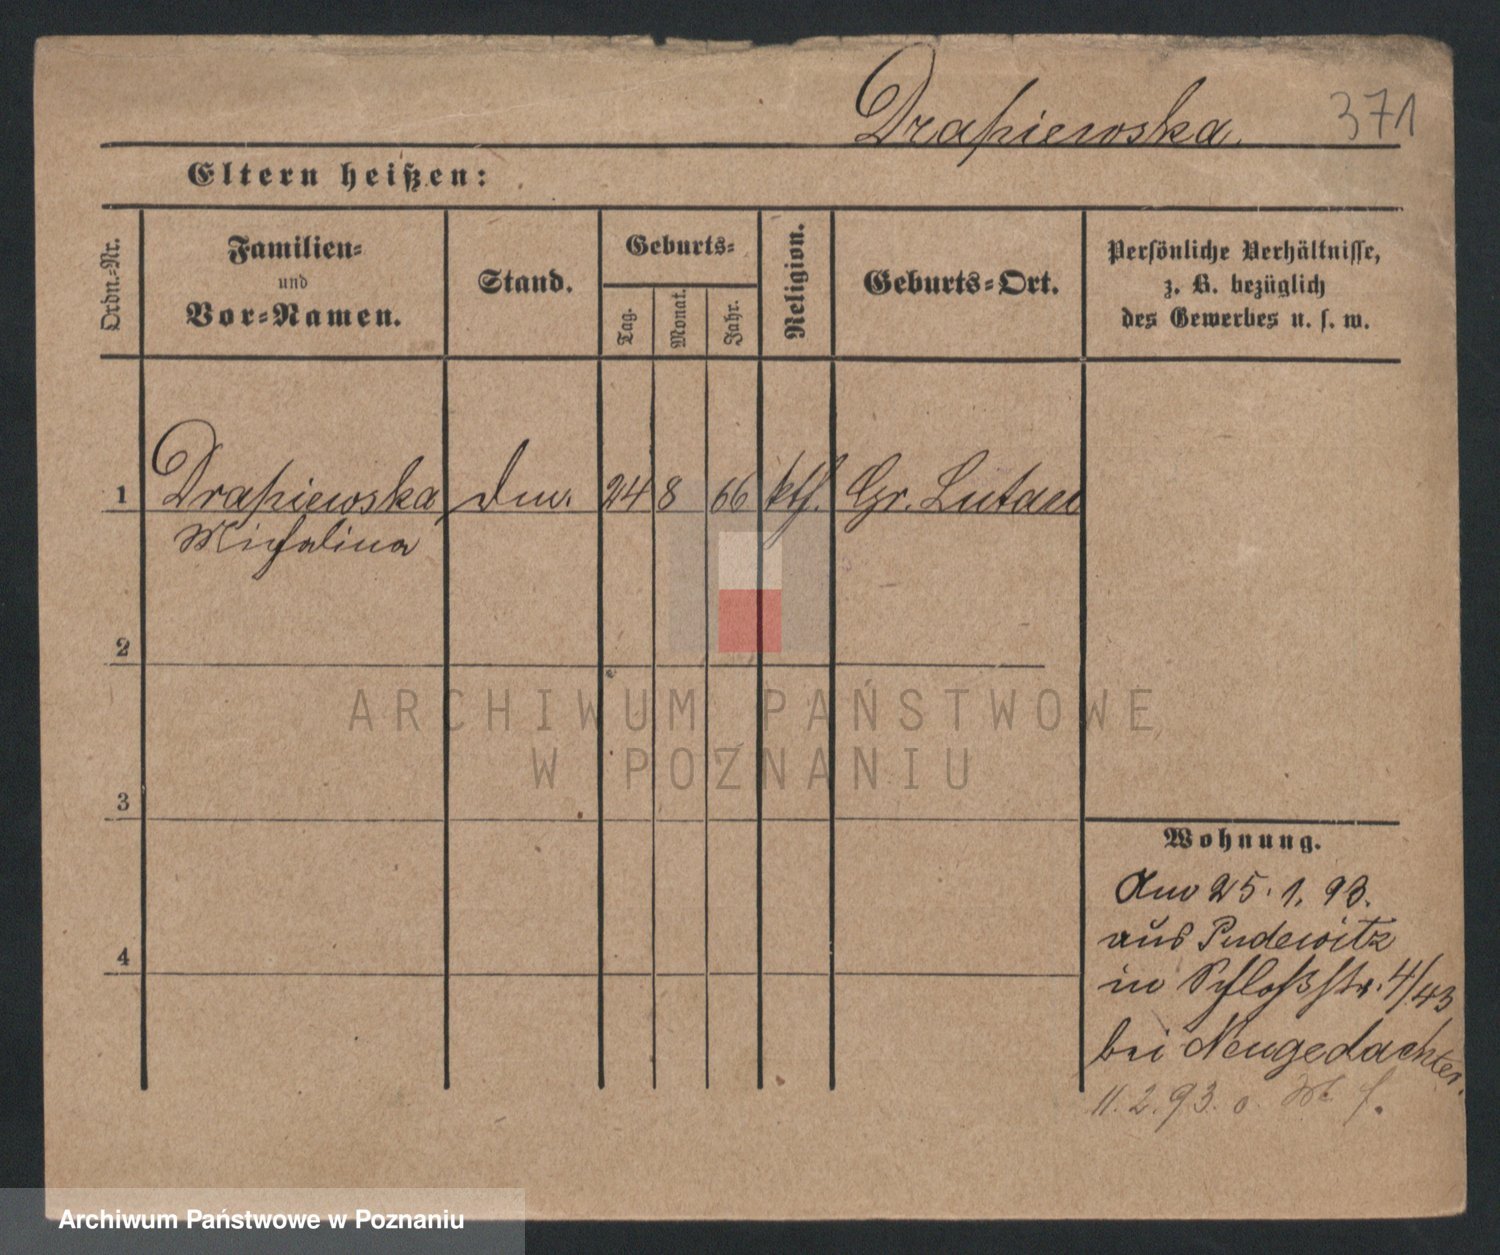 Drapiewska.
371
Eltern heißen:
Ordn.-Nr.
Familien-
und
Vor-Namen.
Stand.
Geburts-
Tag.
Monat.
Jahr.
Religion.
Geburts-Ort.
Persönliche Verhältnisse,
z. B. bezüglich
des Gewerbes u. s. w.
1 Drapiewska 24 8 66 kth. Gr. Lutau
Michalina
2
3
4
Wohnung.
Am 25. 1. 93.
aus Pudewitz
in Schloßstr. 4/43
bei Neugedachter.
11. 2. 93. o.
ARCHIWUM PAŃSTWOWE
W POZNANIU
Archiwum Państwowe w Poznaniu